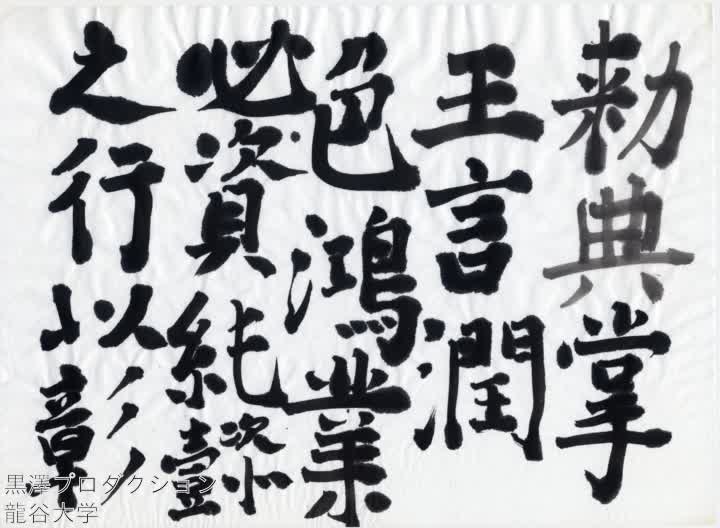 勅典掌
王言潤
色鴻業
必資純懿
之行以彰
黒澤プロダクション
龍谷大学